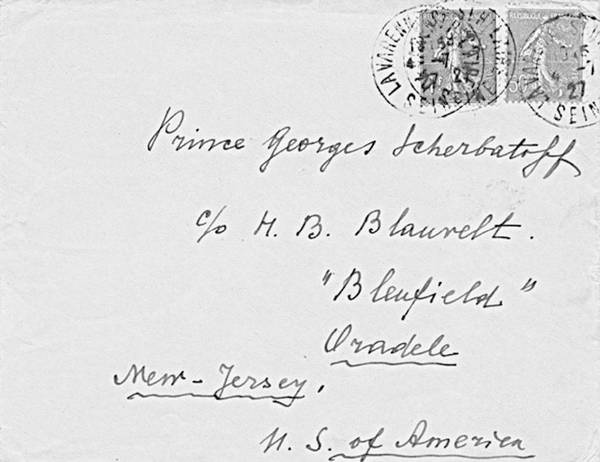 LA VARENNE ST HILAIRE
SEINE
4 -1
27
Prince Georges Scherbatoff
c/o H. B. Blauvelt.
"Blenfield"
Oradele
New-Jersey,
U. S. of America